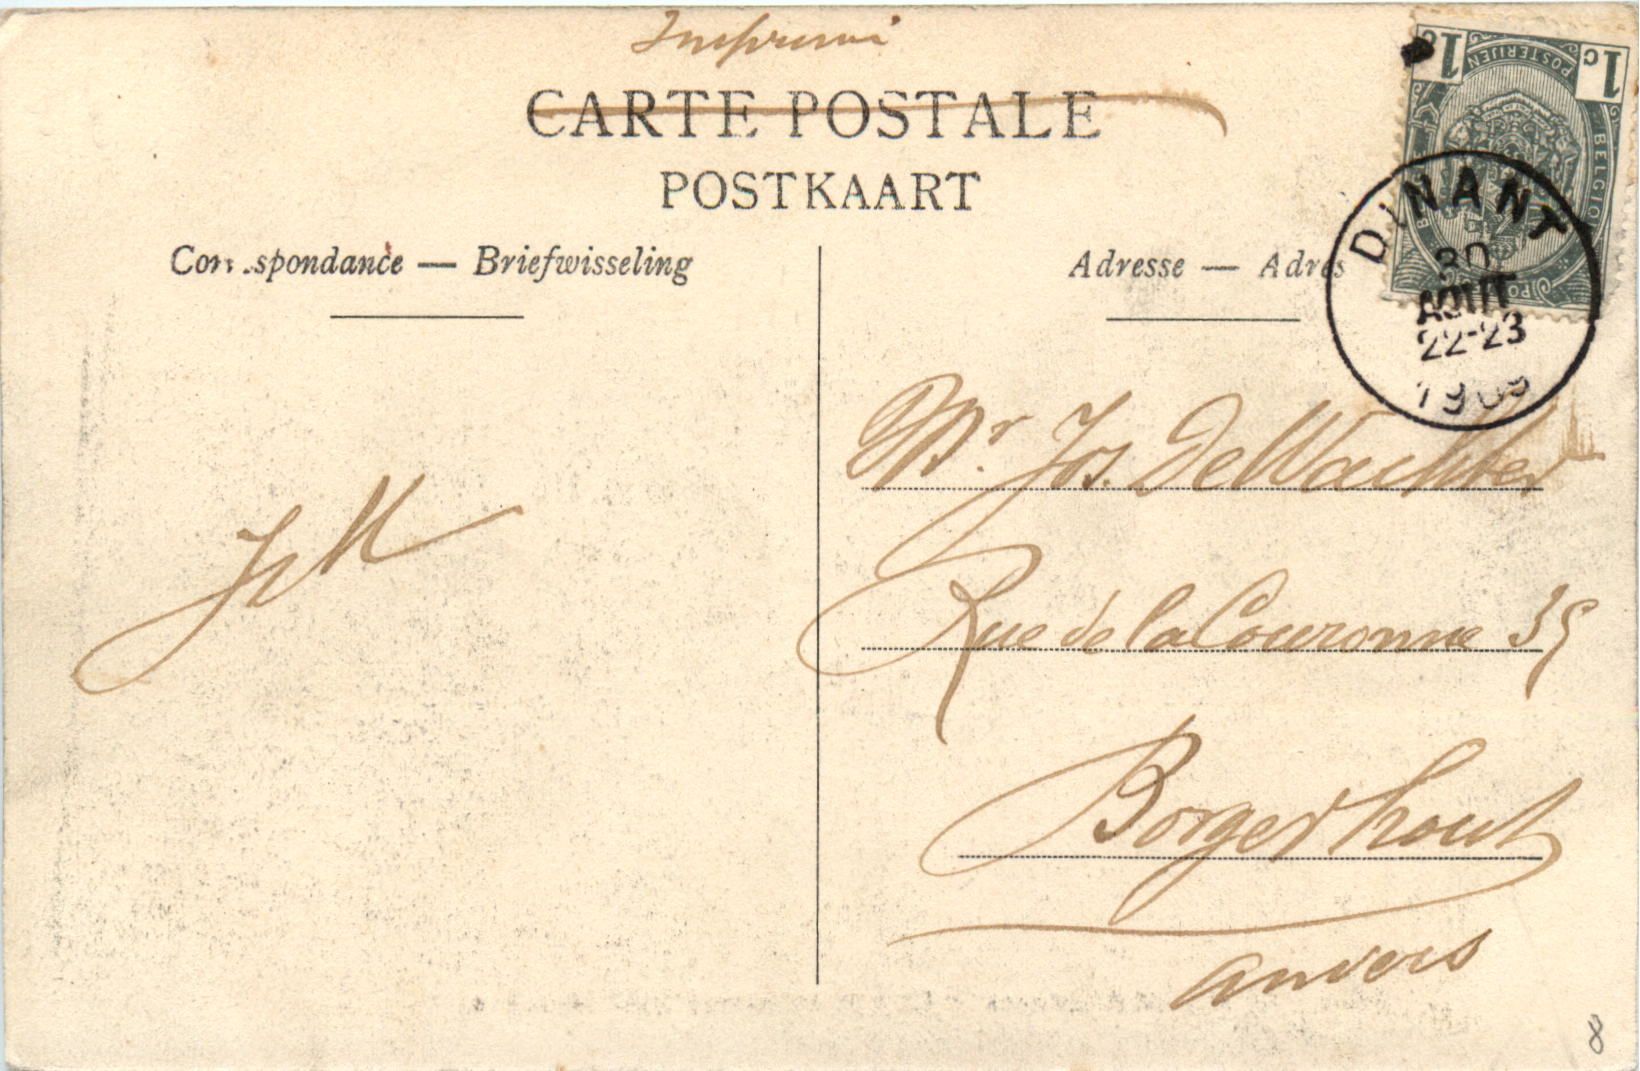 Imprimé
CARTE POSTALE
POSTKAART
Correspondance — Briefwisseling
Adresse — Adres
1c 1c
POSTERIJEN
BELGIQ
DINANT
30
AOUT
22-23
1909
Mr. Jos. DeWachter
Rue de la Couronne 35
Borgerhout
Anvers
8